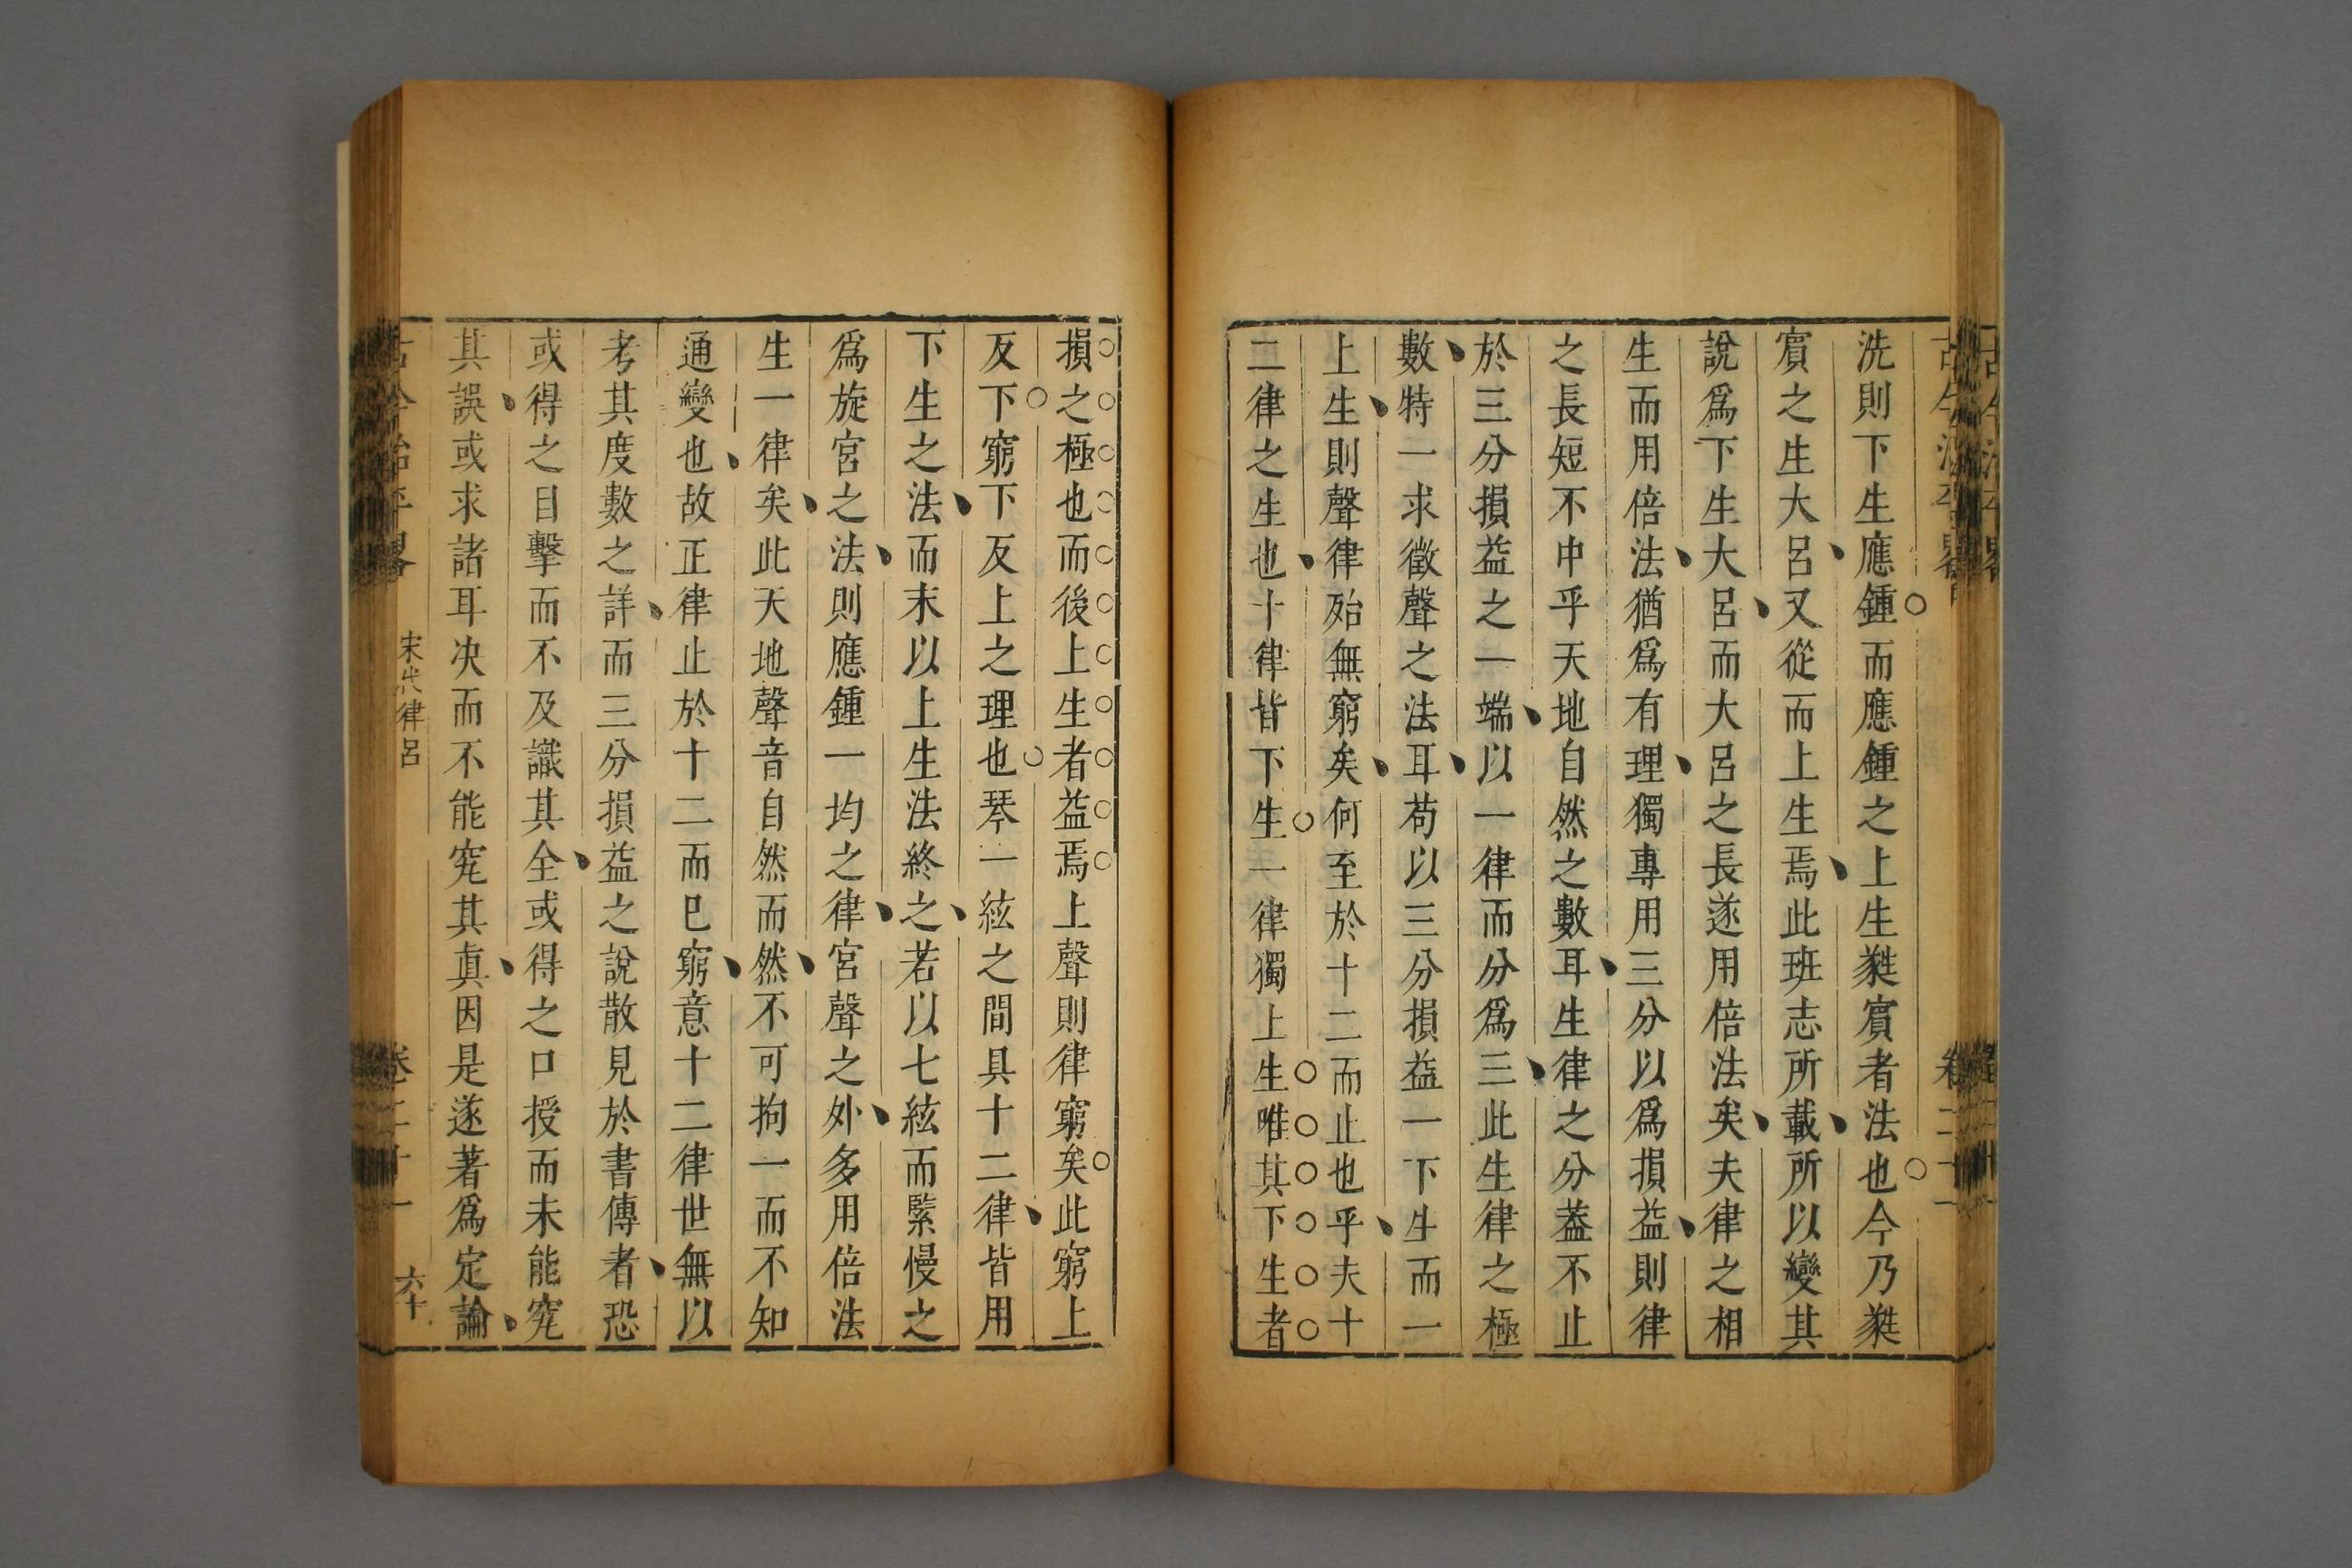 洗則下生應鍾而應鍾之上生蕤賓者法也今乃蕤
賓之生大呂又從而上生焉此班志所載所以變其
說爲下生大呂而大呂之長遂用倍法矣夫律之相
生而用倍法猶爲有理獨專用三分以爲損益則律
之長短不中乎天地自然之數耳生律之分葢不止
於三分損益之一端以一律而分爲三此生律之極
數特一求徵聲之法耳苟以三分損益一下生而一
上生則聲律殆無窮矣何至於十二而止也乎夫十
二律之生也十律皆下生一律獨上生唯其下生者
損之極也而後上生者益焉上聲則律窮矣此窮上
反下窮下反上之理也琴一絃之間具十二律皆用
下生之法而末以上生法終之若以七絃而緊慢之
爲旋宮之法則應鍾一均之律宮聲之外多用倍法
生一律矣此天地聲音自然而然不可拘一而不知
通變也故正律止於十二而已窮意十二律世無以
考其度數之詳而三分損益之說散見於書傳者恐
或得之目擊而不及識其全或得之口授而未能究
其誤或求諸耳决而不能究其眞因是遂著爲定論
古今治平畧
宋代律呂
卷二十一
六十